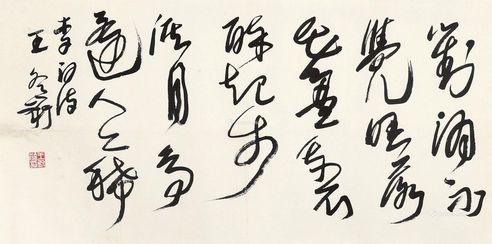 對酒不
覺暝落
花盈我衣
醉起步
溪月鳥
還人亦稀
李白詩
王冬齡